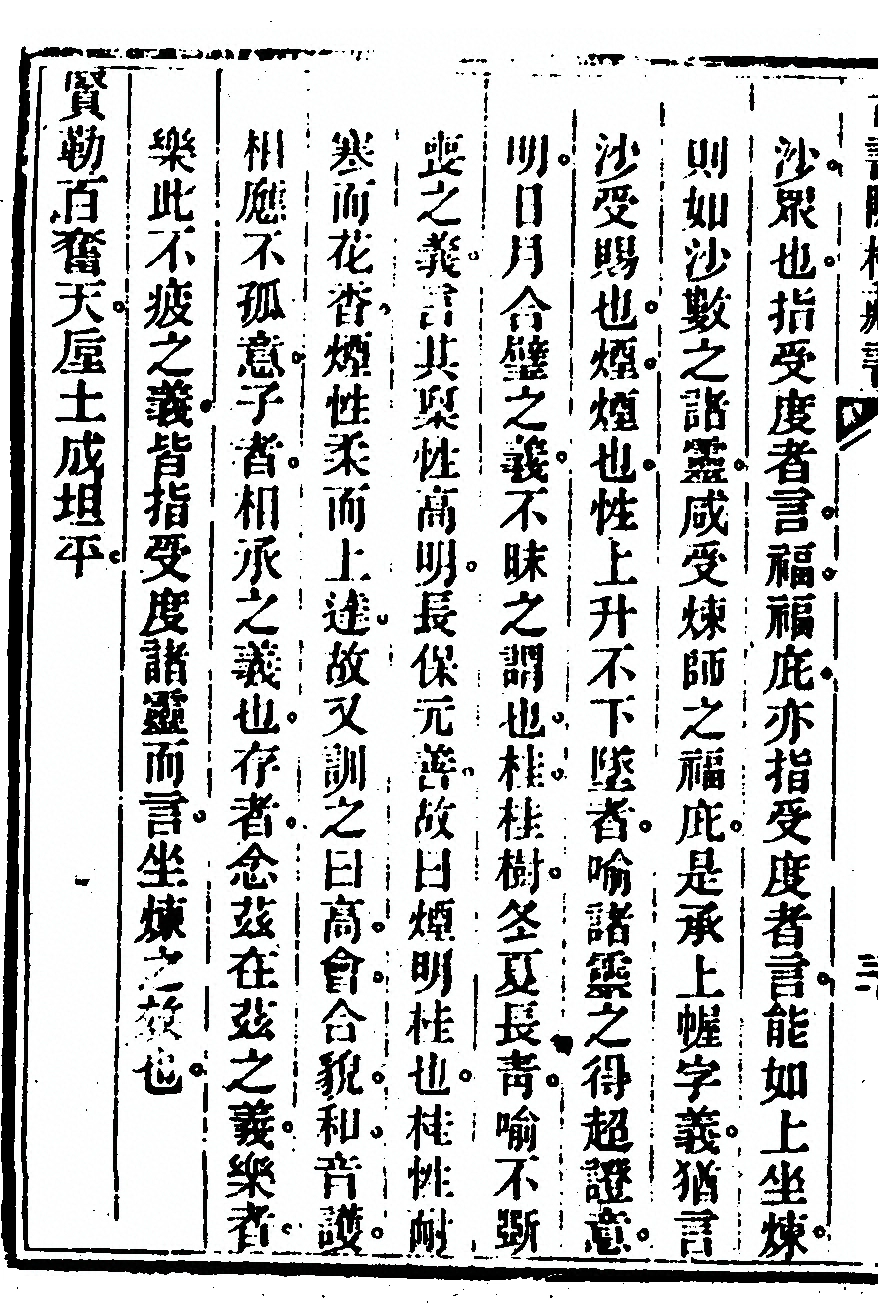 沙。眾也。指受度者言。福。福庇。亦指受度者言。能如上坐煉。
則如沙數之諸靈。咸受煉師之福庇。是承上幄字義。猶言
沙受賜也。煙。煙也。性上升不下墜者。喻諸靈之得超證意。
明。日月合璧之義。不昧之謂也。桂。桂樹。冬夏長青。喻不斲
喪之義。言其稟性高明。長保元善。故曰煙明桂也。桂性耐
寒而花香。煙性柔而上達。故又訓之曰高。會。合貌。和。音護。
相應不孤意。子者。相承之義也。存者。念茲在茲之義。樂者。
樂此不疲之義。皆指受度諸靈而言。坐煉之效也。
賢勒百奮天。厔土成坦平。